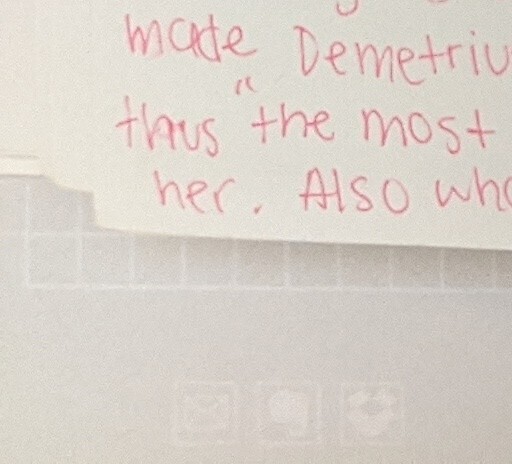 made Demetriu
thus "the most
her. Also who